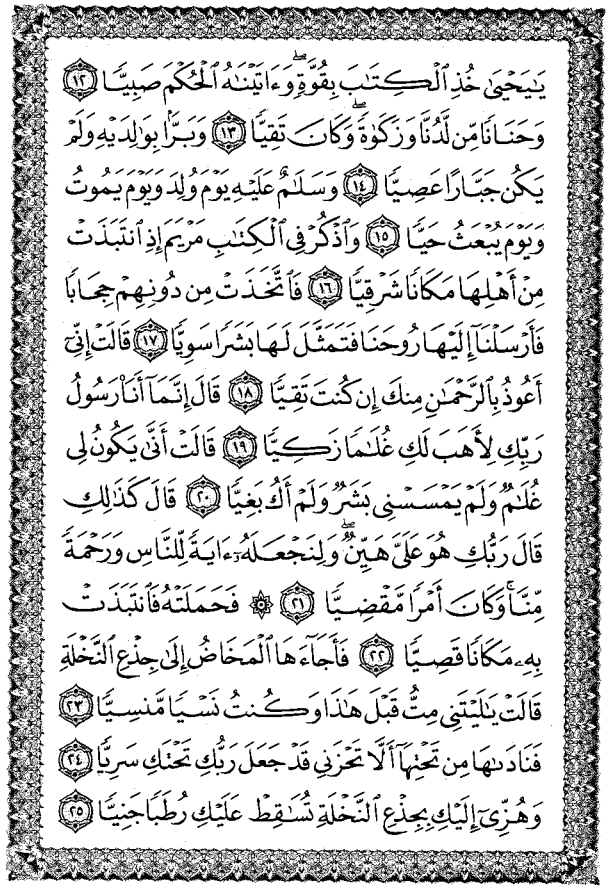 يَـٰيَحۡيَىٰ خُذِ ٱلۡكِتَـٰبَ بِقُوَّةࣲۖ وَءَاتَيۡنَـٰهُ ٱلۡحُكۡمَ صَبِيࣰّا ١٢
وَحَنَانࣰا مِّن لَّدُنَّا وَزَكَوٰةࣰۖ وَكَانَ تَقِيࣰّا ١٣ وَبَرَّۢا بِوَٰلِدَيۡهِ وَلَمۡ
يَكُن جَبَّارًا عَصِيࣰّا ١٤ وَسَلَـٰمٌ عَلَيۡهِ يَوۡمَ وُلِدَ وَيَوۡمَ يَمُوتُ
وَيَوۡمَ يُبۡعَثُ حَيࣰّا ١٥ وَٱذۡكُرۡ فِی ٱلۡكِتَـٰبِ مَرۡيَمَ إِذِ ٱنتَبَذَتۡ
مِنۡ أَهۡلِهَا مَكَانࣰا شَرۡقِيࣰّا ١٦ فَٱتَّخَذَتۡ مِن دُونِهِمۡ حِجَابࣰا
فَأَرۡسَلۡنَآ إِلَيۡهَا رُوحَنَا فَتَمَثَّلَ لَهَا بَشَرࣰا سَوِيࣰّا ١٧ قَالَتۡ إِنِّیٓ
أَعُوذُ بِٱلرَّحۡمَـٰنِ مِنكَ إِن كُنتَ تَقِيࣰّا ١٨ قَالَ إِنَّمَآ أَنَا۠ رَسُولُ
رَبِّكِ لِأَهَبَ لَكِ غُلَـٰمࣰا زَكِيࣰّا ١٩ قَالَتۡ أَنَّىٰ يَكُونُ لِی
غُلَـٰمࣱ وَلَمۡ يَمۡسَسۡنِی بَشَرࣱ وَلَمۡ أَكُ بَغِيࣰّا ٢٠ قَالَ كَذَٰلِكِ
قَالَ رَبُّكِ هُوَ عَلَیَّ هَيِّنࣱۖ وَلِنَجۡعَلَهُۥٓ ءَايَةࣰ لِّلنَّاسِ وَرَحۡمَةࣰ
مِّنَّاۚ وَكَانَ أَمۡرࣰا مَّقۡضِيࣰّا ٢١ ۞ فَحَمَلَتۡهُ فَٱنتَبَذَتۡ
بِهِۦ مَكَانࣰا قَصِيࣰّا ٢٢ فَأَجَآءَهَا ٱلۡمَخَاضُ إِلَىٰ جِذۡعِ ٱلنَّخۡلَةِ
قَالَتۡ يَـٰلَيۡتَنِی مِتُّ قَبۡلَ هَـٰذَا وَكُنتُ نَسۡيࣰا مَّنسِيࣰّا ٢٣
فَنَادَىٰهَا مِن تَحۡتِهَآ أَلَّا تَحۡزَنِی قَدۡ جَعَلَ رَبُّكِ تَحۡتَكِ سَرِيࣰّا ٢٤
وَهُزِّیٓ إِلَيۡكِ بِجِذۡعِ ٱلنَّخۡلَةِ تُسَـٰقِطۡ عَلَيۡكِ رُطَبࣰا جَنِيࣰّا ٢٥